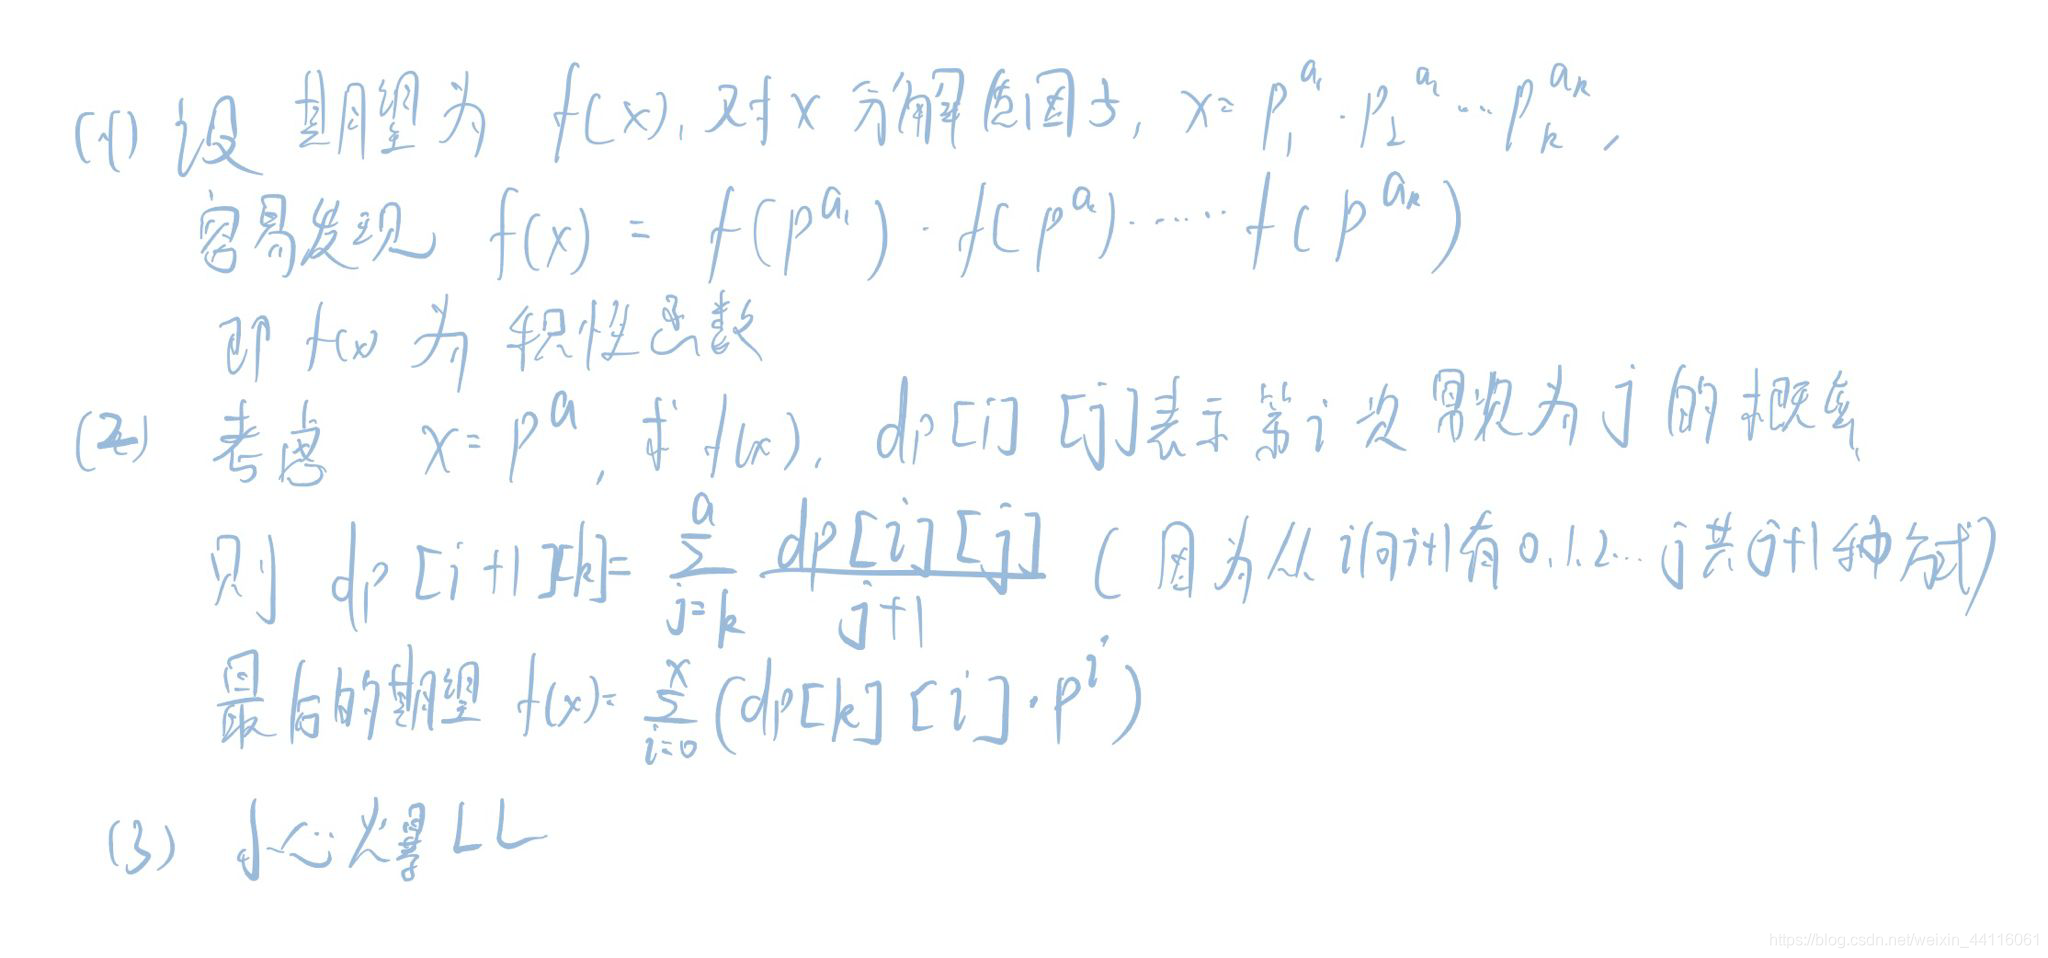 (1) 设 期望为 f(x), 对 x 分解质因子, x = p₁^a₁ · p₂^a₂ ... p_k^a_k ,
容易发现 f(x) = f(p^a₁) · f(p^a₂) ...... f(p^a_k)
即 f(x) 为 积性函数
(2) 考虑 x = p^a , 求 f(x), dp[i][j]表示第 i 次 幂次为 j 的概率
则 dp[i+1][k] = ∑_{j=k}^{a} dp[i][j] / (j+1) ( 因为从 i向i+1有 0,1,2... j共(j+1种方式)
最后的期望 f(x) = ∑_{i=0}^{x} (dp[k][i] · p^i)
(3) 小心爆LL
https://blog.csdn.net/weixin_44116061